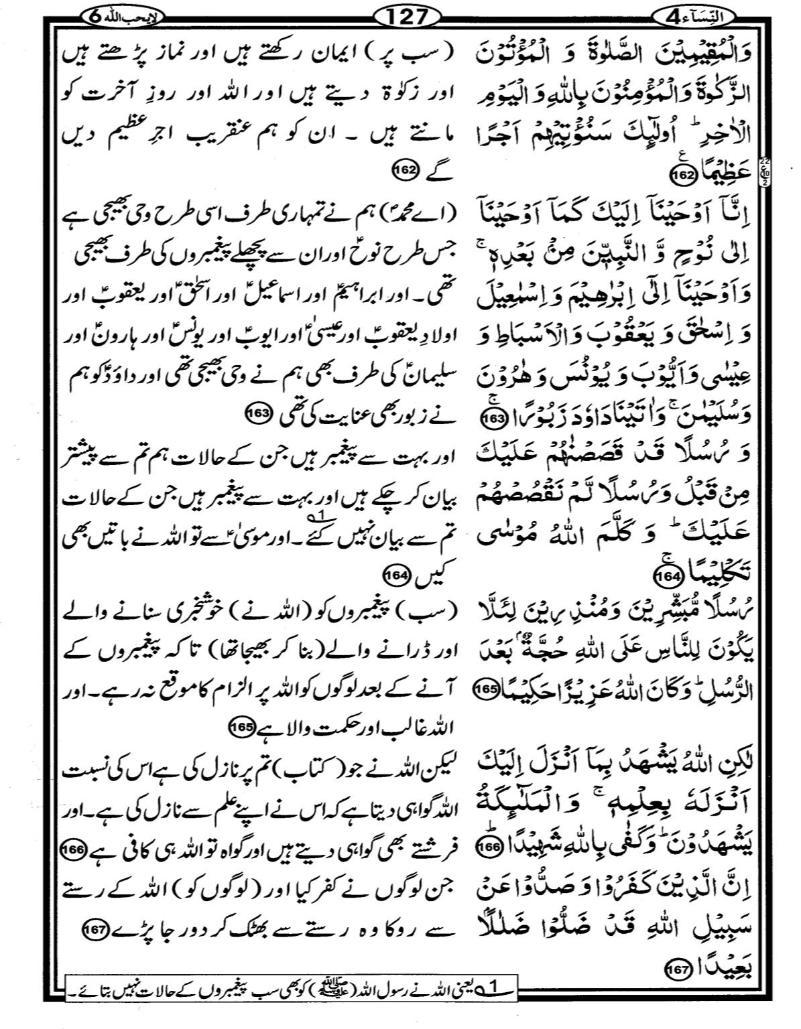 النِّسَآء 4
127
لا يحب الله 6
وَالْمُقِيْمِيْنَ الصَّلٰوةَ وَ الْمُؤْتُوْنَ
الزَّكٰوةَ وَالْمُؤْمِنُوْنَ بِاللّٰهِ وَ الْيَوْمِ
الْاٰخِرِ ؕ اُولٰٓئِكَ سَنُؤْتِيْهِمْ اَجْرًا
عَظِيْمًا 162 ع
اِنَّاۤ اَوْحَيْنَاۤ اِلَيْكَ كَمَاۤ اَوْحَيْنَاۤ
اِلٰى نُوْحٍ وَّ النَّبِيّٖنَ مِنْۢ بَعْدِهٖ ۚ
وَاَوْحَيْنَاۤ اِلٰۤى اِبْرٰهِيْمَ وَ اِسْمٰعِيْلَ
وَ اِسْحٰقَ وَ يَعْقُوْبَ وَالْاَسْبَاطِ وَ
عِيْسٰى وَاَيُّوْبَ وَ يُوْنُسَ وَ هٰرُوْنَ
وَسُلَيْمٰنَ ۚ وَاٰتَيْنَا دَاوٗدَ زَبُوْرًا 163 ۚ
وَ رُسُلًا قَدْ قَصَصْنٰهُمْ عَلَيْكَ
مِنْ قَبْلُ وَرُسُلًا لَّمْ نَقْصُصْهُمْ
عَلَيْكَ ؕ وَ كَلَّمَ اللّٰهُ مُوْسٰى
تَكْلِيْمًا 164 ۚ
رُسُلًا مُّبَشِّرِيْنَ وَمُنْذِرِيْنَ لِئَلَّا
يَكُوْنَ لِلنَّاسِ عَلَى اللّٰهِ حُجَّةٌۢ بَعْدَ
الرُّسُلِ ؕ وَكَانَ اللّٰهُ عَزِيْزًا حَكِيْمًا 165
لٰكِنِ اللّٰهُ يَشْهَدُ بِمَاۤ اَنْزَلَ اِلَيْكَ
اَنْزَلَهٗ بِعِلْمِهٖ ۚ وَالْمَلٰٓئِكَةُ
يَشْهَدُوْنَ ؕ وَكَفٰى بِاللّٰهِ شَهِيْدًا 166 ؕ
اِنَّ الَّذِيْنَ كَفَرُوْا وَصَدُّوْا عَنْ
سَبِيْلِ اللّٰهِ قَدْ ضَلُّوْا ضَلٰلًاۢ
بَعِيْدًا 167
(سب پر) ایمان رکھتے ہیں اور نماز پڑھتے ہیں
اور زکوٰۃ دیتے ہیں اور اللہ اور روزِ آخرت کو
مانتے ہیں ۔ ان کو ہم عنقریب اجرِ عظیم دیں
گے 162
(اے محمدؐ) ہم نے تمہاری طرف اسی طرح وحی بھیجی ہے
جس طرح نوحؑ اور ان سے پچھلے پیغمبروں کی طرف بھیجی
تھی۔ اور ابراہیمؑ اور اسماعیلؑ اور اسحٰقؑ اور یعقوبؑ اور
اولادِ یعقوبؑ اور عیسیٰؑ اور ایوبؑ اور یونسؑ اور ہارونؑ اور
سلیمانؑ کی طرف بھی ہم نے وحی بھیجی تھی اور داؤدؑ کو ہم
نے زبور بھی عنایت کی تھی 163
اور بہت سے پیغمبر ہیں جن کے حالات ہم تم سے پیشتر
بیان کر چکے ہیں اور بہت سے پیغمبر ہیں جن کے حالات
تم سے بیان نہیں کئے 1۔ اور موسیٰؑ سے تو اللہ نے باتیں بھی
کیں 164
(سب) پیغمبروں کو (اللہ نے) خوشخبری سنانے والے
اور ڈرانے والے (بنا کر بھیجا تھا) تاکہ پیغمبروں کے
آنے کے بعد لوگوں کو اللہ پر الزام کا موقع نہ رہے۔ اور
اللہ غالب اور حکمت والا ہے 165
لیکن اللہ نے جو (کتاب) تم پر نازل کی ہے اس کی نسبت
اللہ گواہی دیتا ہے کہ اس نے اپنے علم سے نازل کی ہے۔ اور
فرشتے بھی گواہی دیتے ہیں اور گواہ تو اللہ ہی کافی ہے 166
جن لوگوں نے کفر کیا اور (لوگوں کو) اللہ کے رستے
سے روکا وہ رستے سے بھٹک کر دور جا پڑے 167
1 یعنی اللہ نے رسول اللہ (ﷺ) کو بھی سب پیغمبروں کے حالات نہیں بتائے۔